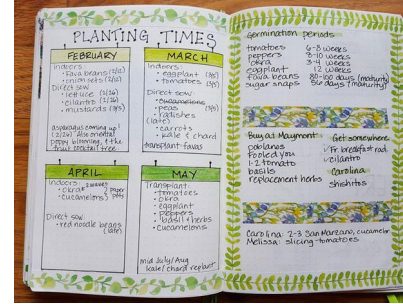 PLANTING TIMES
FEBRUARY
Indoors:
• fava beans (2/12)
• onion sets (2/12)
Direct sow
• lettuce (2/26)
• cilantro (2/26)
• mustards (3/5)
asparagus coming up!
(2/26) Also oriental
poppy blooming, & the
fruit cocktail tree
MARCH
Indoors:
• eggplant (3/5)
• tomatoes (3/5)
Direct sow
• cucamelons
• peas
• radishes
(late)
• carrots
• kale & chard
transplant favas
APRIL
Indoors:
• okra
• cucamelons
2 waves
paper
pots
Direct sow:
• red noodle beans
(late)
MAY
Transplant:
• tomatoes
• okra
• eggplant
• peppers
• basil & herbs
• cucamelons
mid July/Aug
kale/chard replant
Germination periods
tomatoes 6-8 weeks
peppers 8-10 weeks
okra 3-4 weeks
eggplant 12 weeks
fava beans 80-100 days (maturity)
sugar snaps 56 days (maturity)
Buy at Maymont
poblanos
Fooled you
1-2 tomato
basils
replacement herbs
Get somewhere
Fr. breakfast rad.
cilantro
Carolina
shishitos
Carolina: 2-3 San Marzano, cucamelon
Melissa: slicing tomatoes